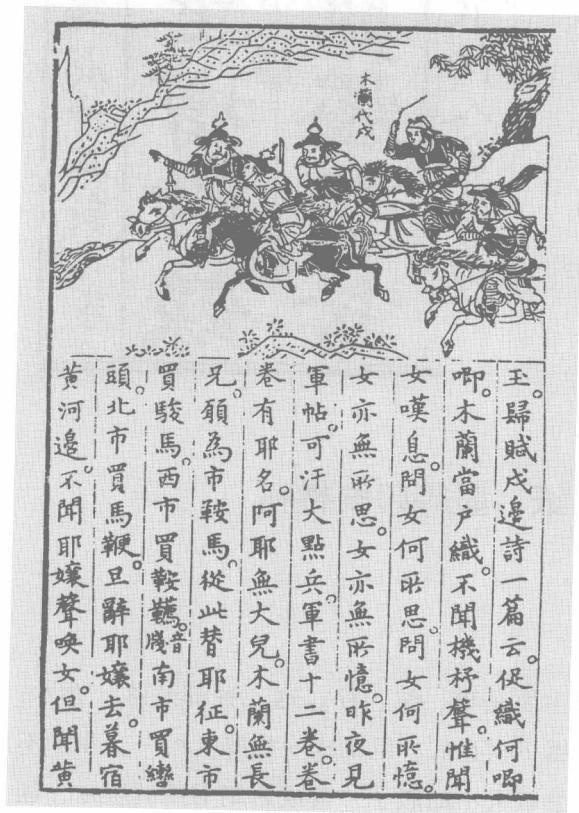 木蘭代戍
玉。歸賦戍邊詩一篇云。促織何唧
唧。木蘭當户織。不聞機杼聲。惟聞
女嘆息。問女何所思問女何所憶。
女亦無所思。女亦無所憶。昨夜見
軍帖。可汗大點兵。軍書十二卷。卷
卷有耶名。阿耶無大兒。木蘭無長
兄。願為市鞍馬。從此替耶征。東市
買駿馬。西市買鞍韉。音牋南市買轡
頭。北市買馬鞭。旦辭耶孃去。暮宿
黃河邊。不聞耶孃聲喚女。但聞黃